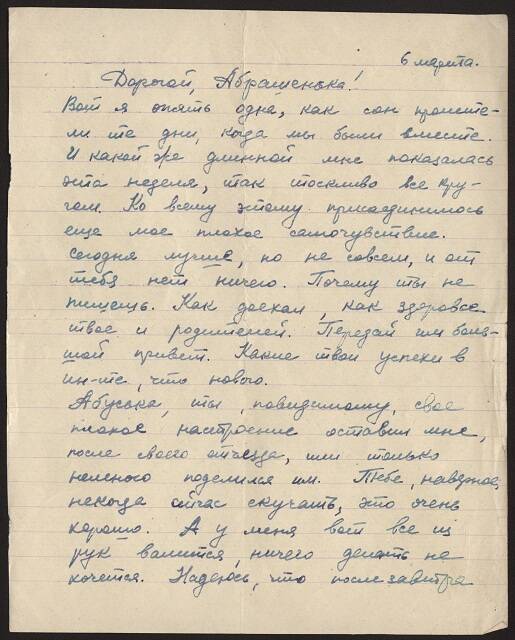 6 марта.
Дорогой, Абрашенька!
Вот я опять одна, как сон пролете-
ли те дни, когда мы были вместе.
И какой же длинной мне показалась
эта неделя, так тоскливо все кру-
гом. Ко всему этому присоединилось
еще мое плохое самочувствие.
Сегодня лучше, но не совсем, и от
тебя нет ничего. Почему ты не
пишешь. Как доехал, как здоровье
твое и родителей. Передай им боль-
шой привет. Какие твои успехи в
ин-те, что нового.
Абуська, ты, повидимому, свое
плохое настроение оставил мне,
после своего отъезда, или только
немного поделился им. Тебе, наверное,
некогда сейчас скучать, это очень
хорошо. А у меня вот все из
рук валится, ничего делать не
хочется. Надеюсь, что послезавтра